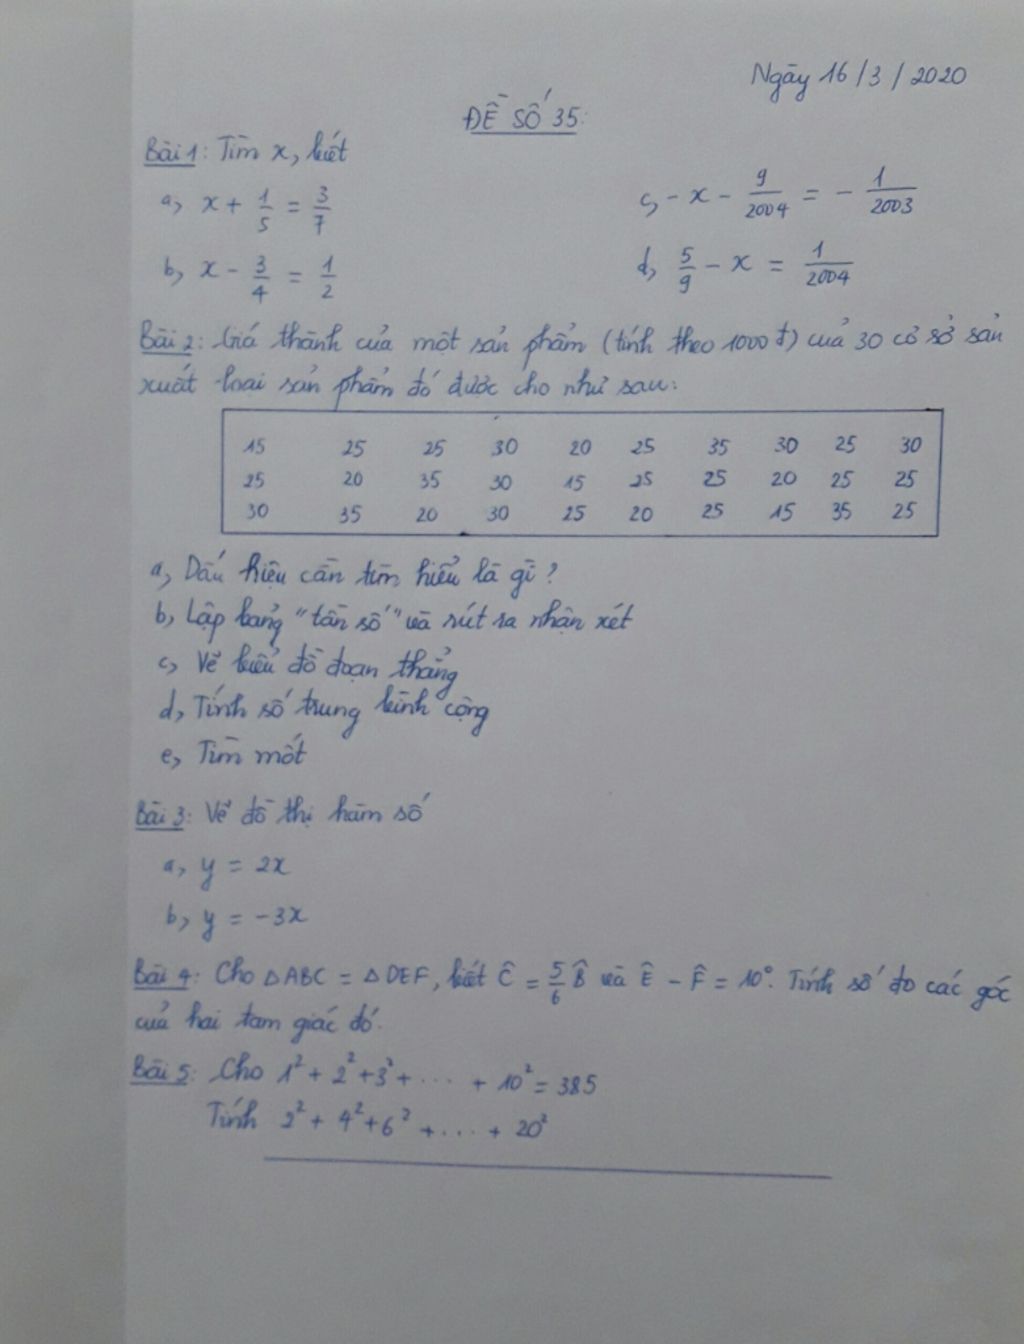 Ngày 16/3/2020
ĐỀ SỐ 35:
Bài 1: Tìm x, biết
a, x + 1/5 = 3/7
c, - x - 9/2004 = - 1/2003
b, x - 3/4 = 1/2
d, 5/9 - x = 1/2004
Bài 2: Giá thành của một sản phẩm (tính theo 1000đ) của 30 cơ sở sản
xuất loại sản phẩm đó được cho như sau:
15 25 25 30 20 25 35 30 25 30
25 20 35 30 15 25 25 20 25 25
30 35 20 30 25 20 25 15 35 25
a, Dấu hiệu cần tìm hiểu là gì?
b, Lập bảng "tần số" và rút ra nhận xét
c, Vẽ biểu đồ đoạn thẳng
d, Tính số trung bình cộng
e, Tìm mốt
Bài 3: Vẽ đồ thị hàm số
a, y = 2x
b, y = -3x
Bài 4: Cho △ABC = △DEF, biết Ĉ = 5/6 B̂ và Ê - F̂ = 10°. Tính số đo các góc
của hai tam giác đó.
Bài 5: Cho 1² + 2² + 3² + .... + 10² = 385
Tính 2² + 4² + 6² + .... + 20²